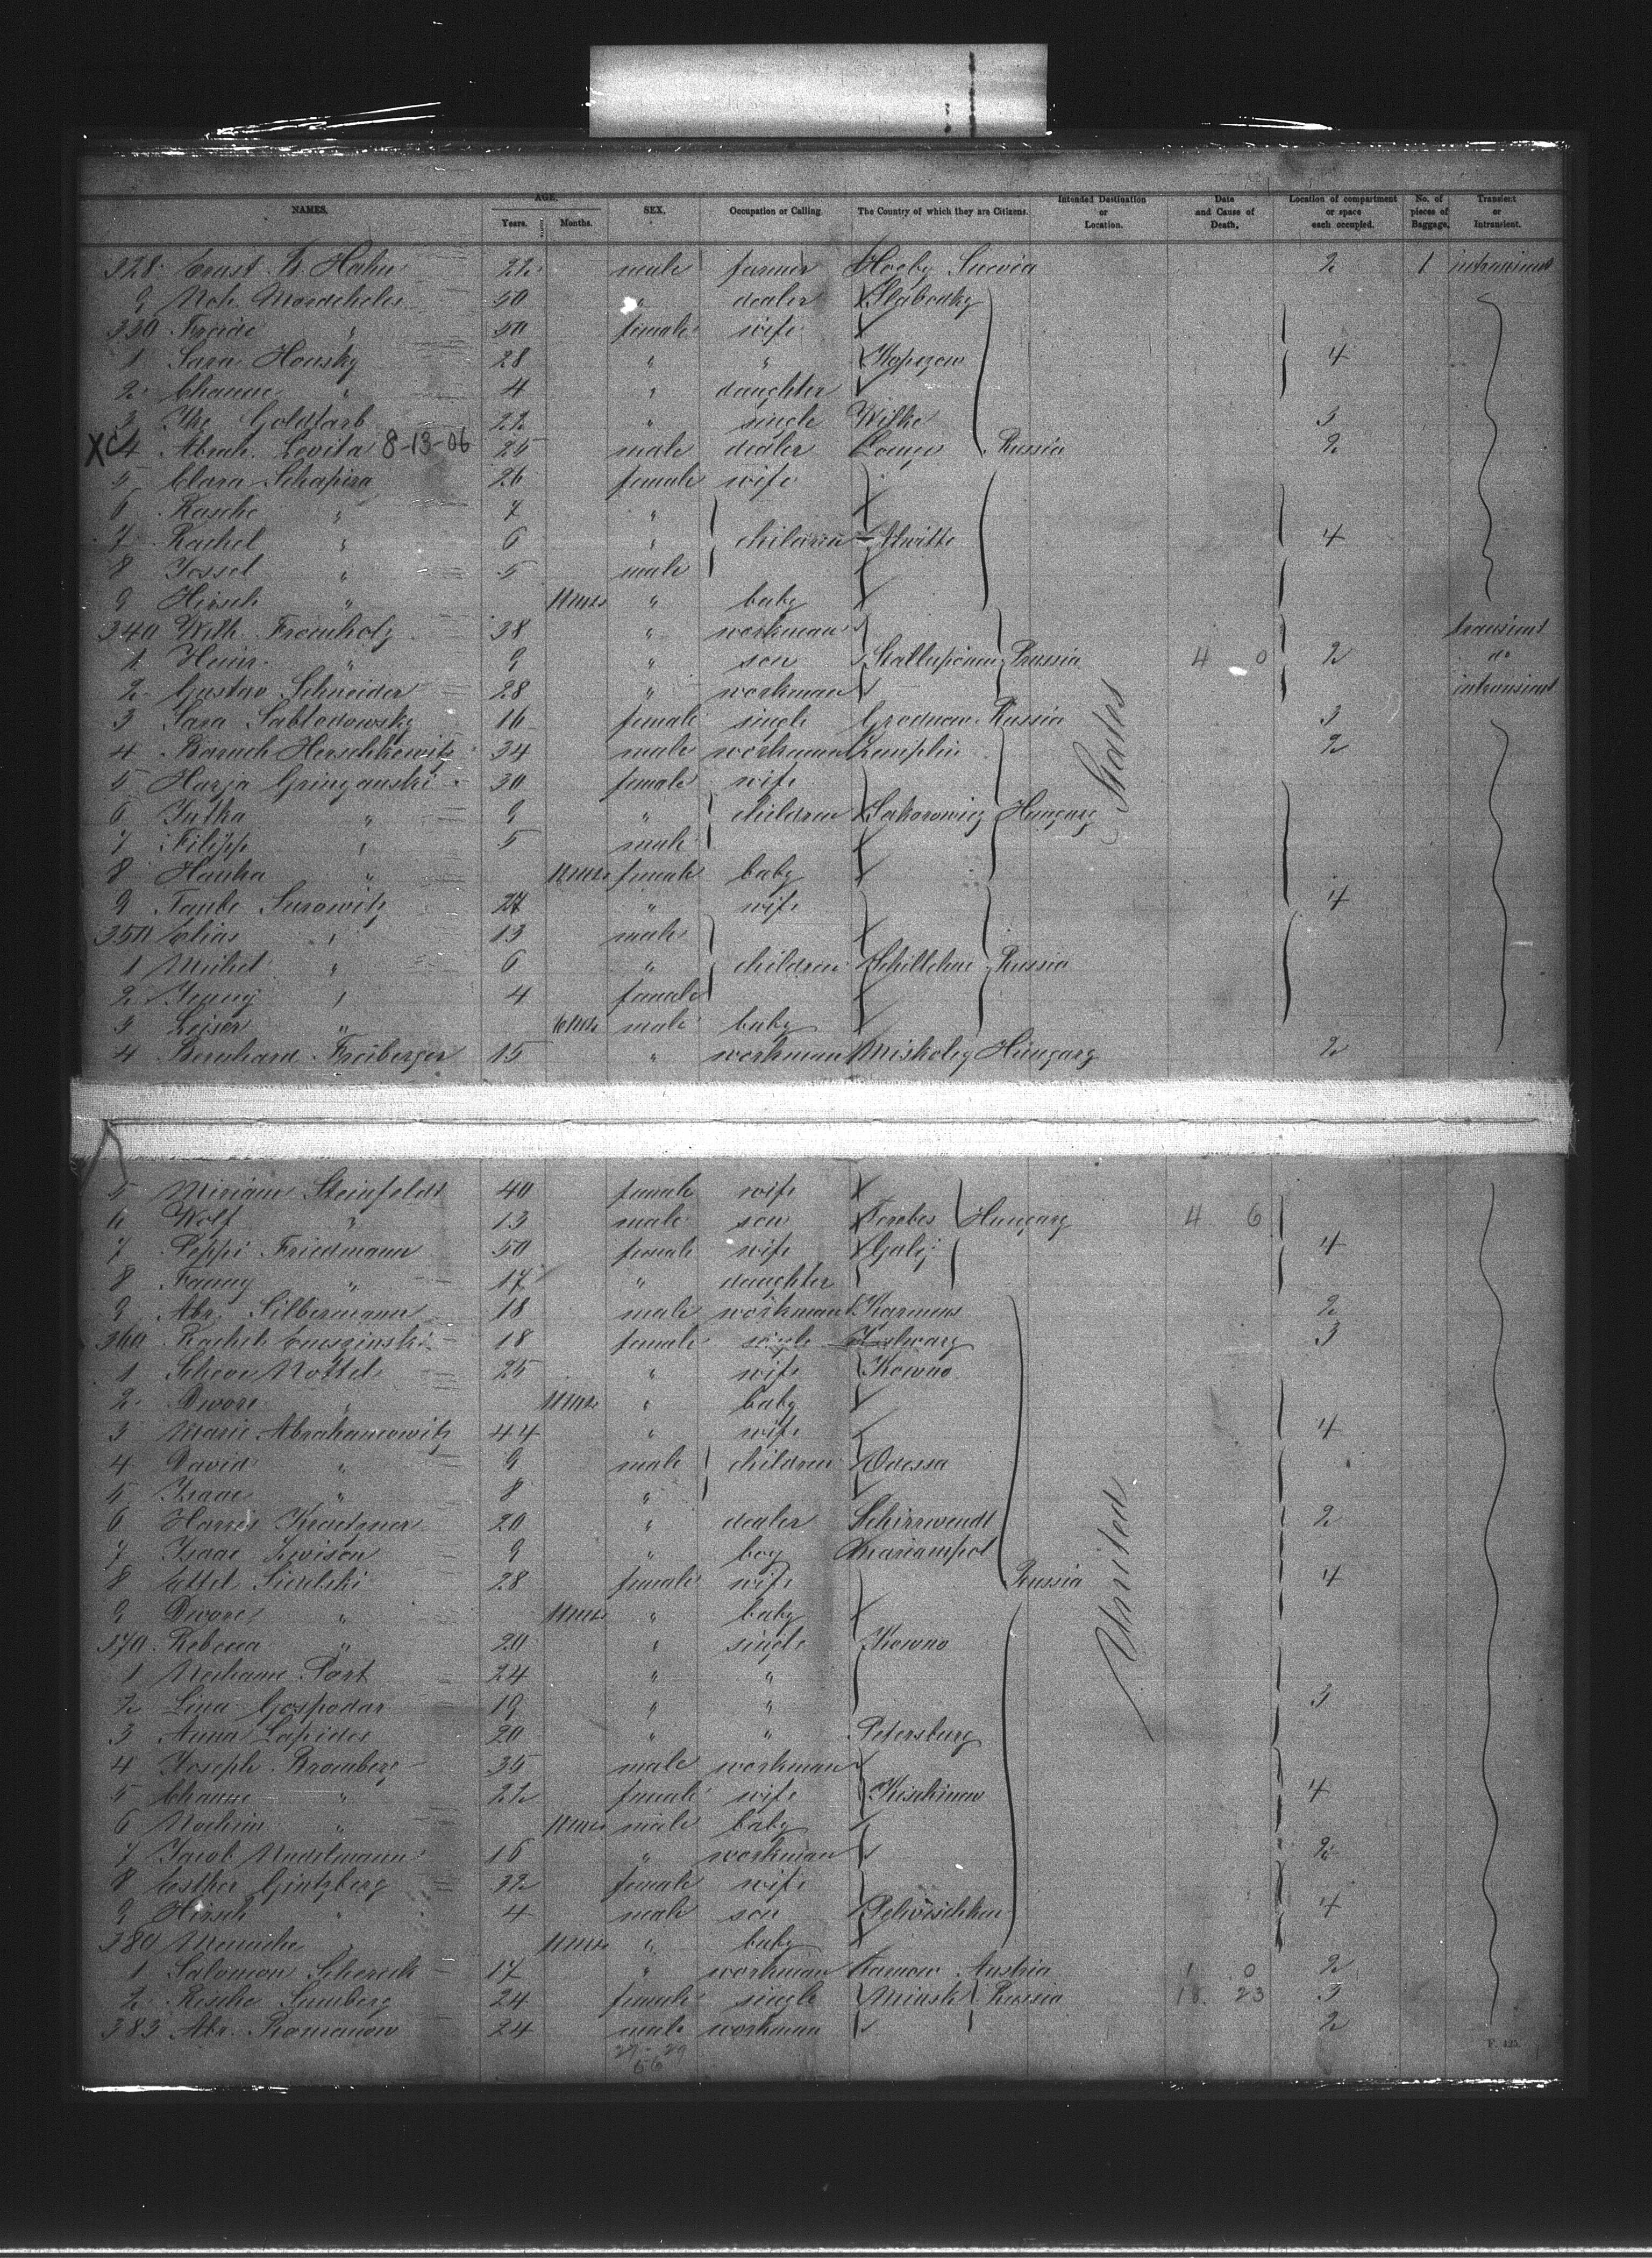 NAMES. AGE. Years. Months. SEX. Occupation or Calling. The Country of which they are Citizens. Intended Destination or Location. Date and Cause of Death. Location of compartment or space each occupied. No. of pieces of Baggage. Transient or Intransient.
328 Ernst B. Hahn 22 male farmer Hoeby Suevia 2 1 intransient
9 Noh. Mordcheles 50 " dealer Slabodky
330 Freide " 50 female wife
1 Sara Honsky 28 " " Kopczow 4
2 Channe " 4 " daughter
3 Ike Goldfarb 22 " single Wilke 3
XC 4 Abrah. Levita 8-13-06 25 male dealer Russia 2
5 Clara Schapira 26 female wife
6 Rasche " 7 "
7 Rachel " 6 " children 4
8 Jossel " 5 male
9 Hirsch " 11 mts " baby
340 Wilh. Fromholz 38 " workman transient
1 Heinr. " 9 " son Stallupönen Prussia 4 0 2 do
2 Gustav Schneider 28 " workman intransient
3 Sara Sablodowsky 16 female single Grodnow Russia 3
4 Baruch Herschkowitz 34 male workman Zemplin 2
5 Hurja Gringauski 30 female wife
6 Jutka " 9 " children Sakorowicz Hungary States
7 Filipp " 5 male
8 Hanka " 11 mts female baby
9 Taube Surowitz 27 " wife 4
350 Elias " 13 male
1 Michel " 6 " children Russia
2 Jenny " 4 female
3 Leiser " 6 mts male baby
4 Bernhard Freiberger 15 " workman Miskolcy Hungary 2
5 Miriam Steinfeldt 40 female wife
6 Wolf " 13 male son Terebes Hungary 4 6
7 Peppi Friedmann 50 female wife 4
8 Fanny " 17 " daughter
9 Abr. Silbermann 18 male workman 2
360 Rachel 18 female single 3
1 Schewe Nottel 25 " wife Kowno
2 Dwore " 11 mts " baby
3 Marie Abrahamowitz 44 " wife 4
4 David " 9 male children Odessa
5 Isaac " 8 "
6 Harris Kraetzner 20 " dealer Schirrwendt 2
7 Isaac Lewison 9 " boy Mariampol
8 Ettel Sidelski 28 female wife Russia 4
9 Dwore " 11 mts " baby United
370 Rebecca " 20 " single Kowno
1 Nechame Port 24 " "
2 Lina Gospodar 19 " " 3
3 Anna Lapides 20 " " Petersburg
4 Joseph Bromberg 35 male workman
5 Channe " 22 female wife Kischinew 4
6 Nochim " 11 mts male baby
7 Jacob Nadelmann 16 " workman 2
8 Esther Gintzberg 32 female wife
9 Hirsch " 4 male son 4
380 Menuche " 11 mts " baby
1 Salomon Scherech 17 " workman Tarnow Austria 1 0 2
2 Rische Sumberg 24 female single Minsk Russia 18 23 3
383 Abr. Romanow 24 male workman 2
27 - 29
56